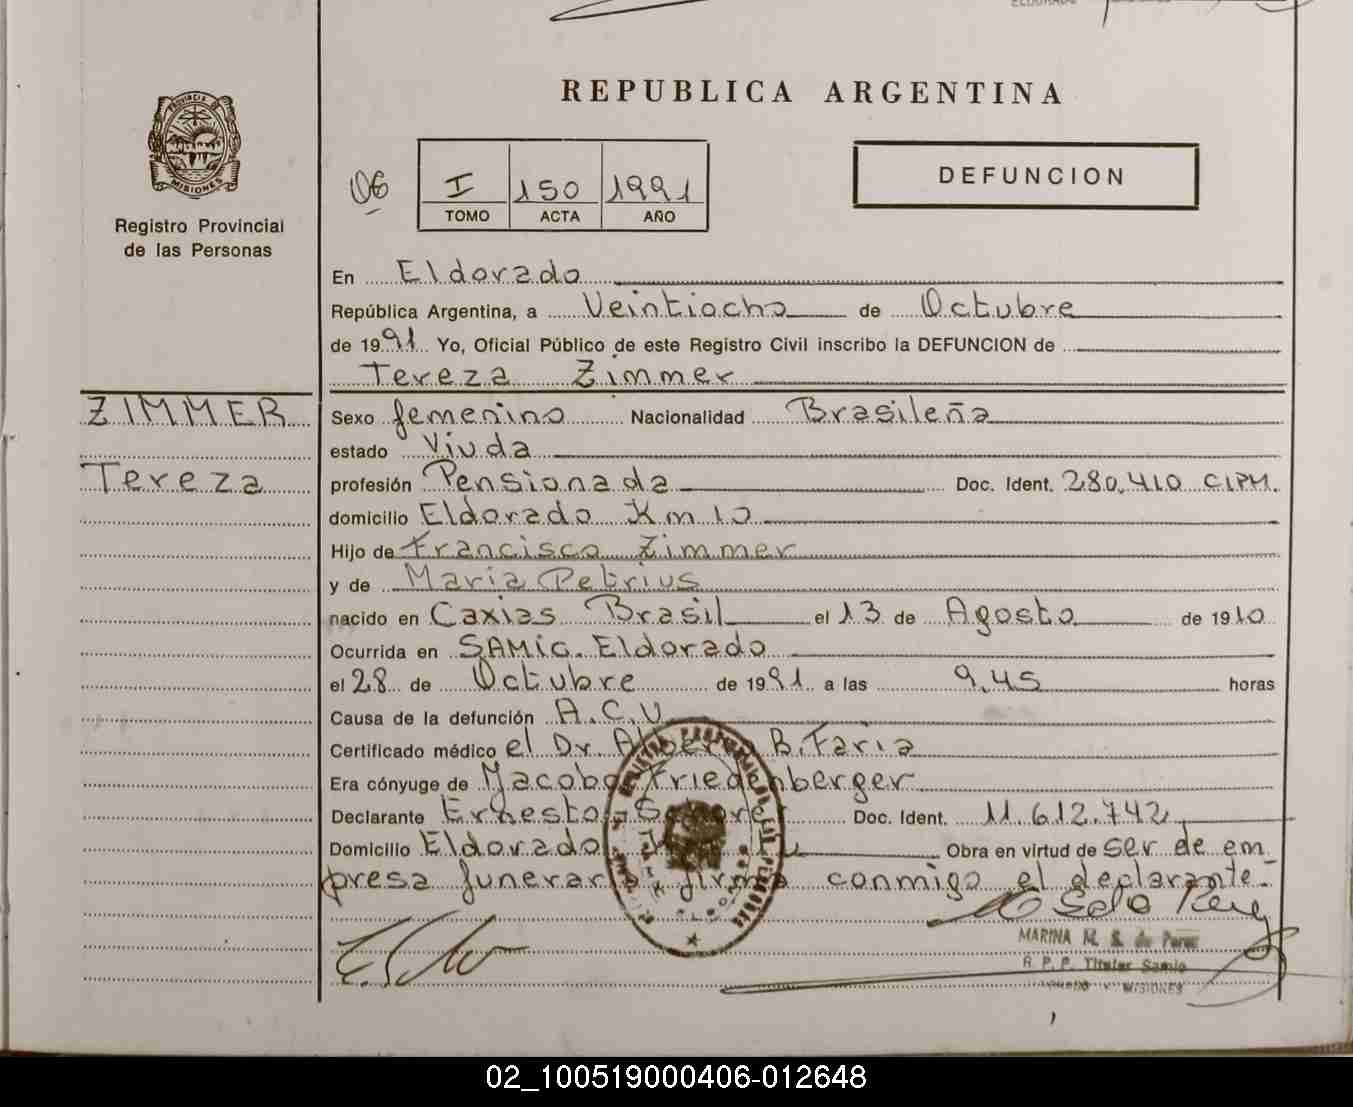 REPUBLICA ARGENTINA
PROVINCIA DE
MISIONES
Registro Provincial
de las Personas
06
I 150 1991
TOMO ACTA AÑO
DEFUNCION
En Eldorado
República Argentina, a Veintiocho de Octubre
de 1991 Yo, Oficial Público de este Registro Civil inscribo la DEFUNCION de
Tereza Zimmer
ZIMMER
Tereza
Sexo femenino Nacionalidad Brasileña
estado Viuda
profesión Pensionada Doc. Ident. 280.410 CIPM.
domicilio Eldorado Km 10
Hijo de Francisco Zimmer
y de Maria Petrius
nacido en Caxias Brasil el 13 de Agosto de 1910
Ocurrida en SAMIC. Eldorado
el 28 de Octubre de 1991 a las 9,45 horas
Causa de la defunción A.C.V
Certificado médico el Dr. Alberto B. Faria
Era cónyuge de Jacobo Friedenberger
Declarante Ernesto Doc. Ident. 11.612.742
Domicilio Eldorado Obra en virtud de ser de em
presa funeraria firma conmigo el declarante.
MARINA M. S. de Perez
R. P. P. Titular Samic
MISIONES
02_100519000406-012648